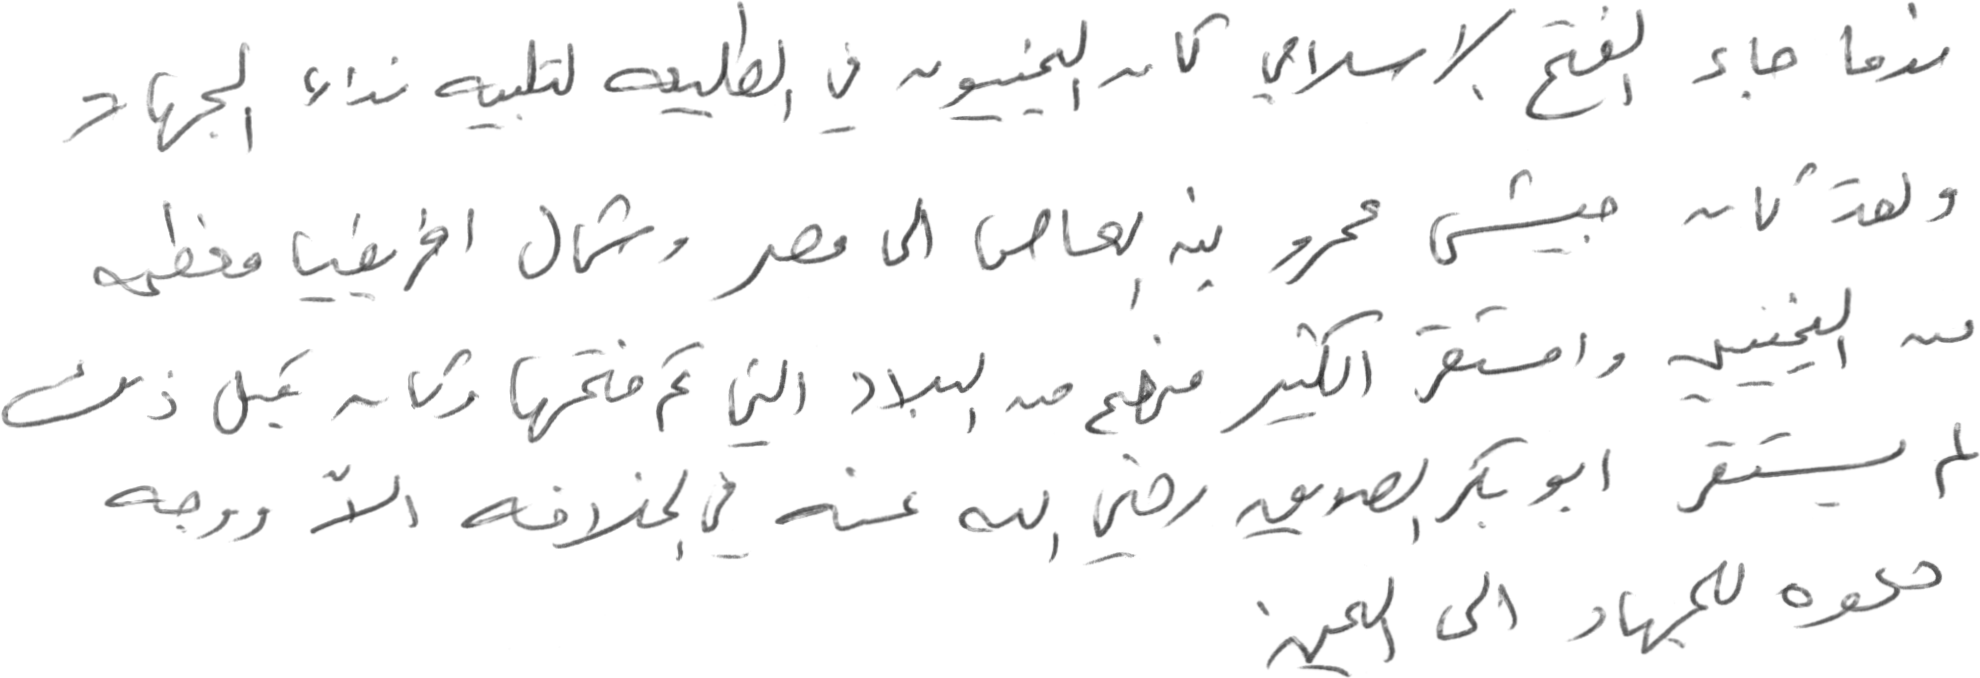 عندما جاء الفتح الاسلامي كان اليمنيون في الطليعه لتلبيه نداء الجهاد
ولقد كان جيش عمرو بن العاص الى مصر وشمال افريقيا معظمه
من اليمنيين واستقر الكثير منهم من البلاد التي تم فتحها وكان قبل ذلك
لم يستقر ابو بكر الصديق رضي الله عنه في الخلافه الاّ ووجه
دعوه للجهاد الى اليمن